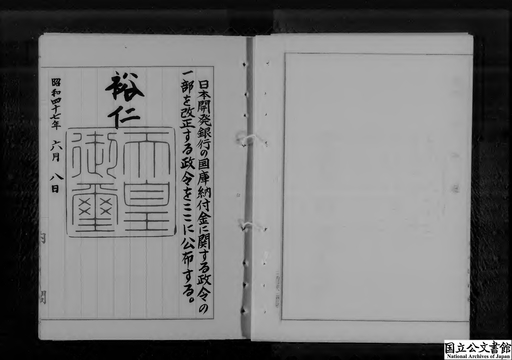 日本開発銀行の国庫納付金に関する政令の
一部を改正する政令をここに公布する。
裕仁
天皇
御璽
昭和四十七年 六月 八日
国立公文書館
National Archives of Japan